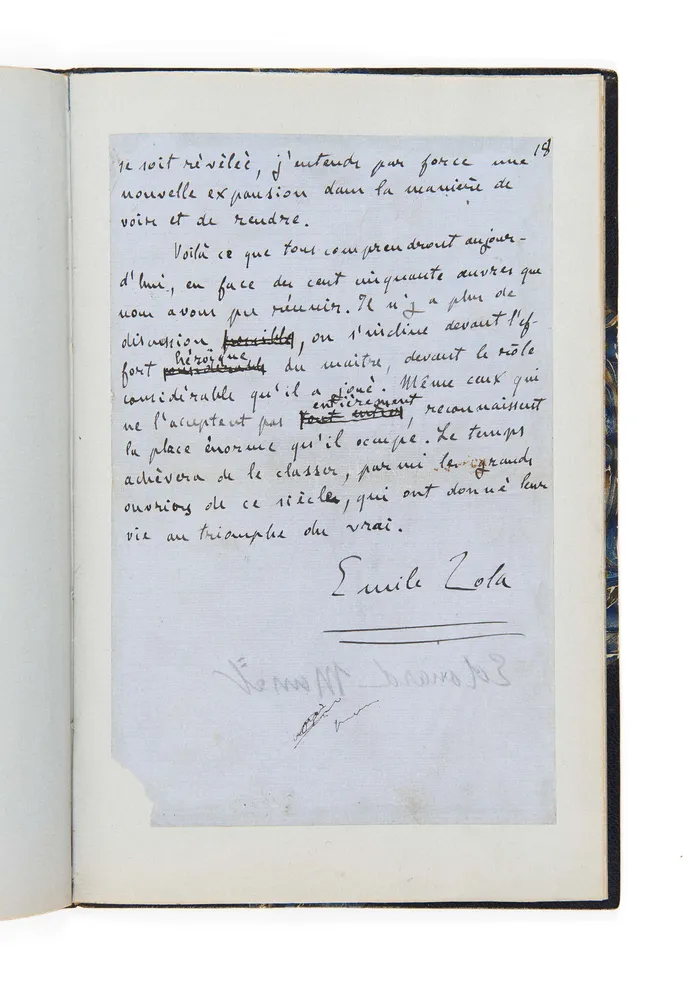 18
se soit révélée, j'entends par force une
nouvelle expansion dans la manière de
voir et de rendre.
Voilà ce que tous comprendront aujour-
d'hui, en face des cent cinquante œuvres que
nous avons pu réunir. Il n'y a plus de
discussion possible, on s'incline devant l'ef-
héroïque
fort considérable du maître, devant le rôle
considérable qu'il a joué. Même ceux qui
entièrement
ne l'acceptent pas tout entier, reconnaissent
la place énorme qu'il occupe. Le temps
achèvera de le classer, parmi les grands
ouvriers de ce siècle, qui ont donné leur
vie au triomphe du vrai.
Emile Zola
Edouard Manet